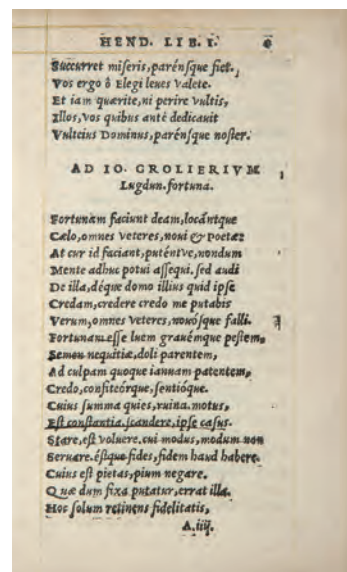 HEND. LIB. I.
Succurret miseris, parénsque fiet.
Vos ergo ô Elegi leues valete.
Et iam quærite, ni perire vultis,
Illos, vos quibus antè dedicauit
Vulteius Dominus, parénsque noster.
AD IO. GROLIERIVM
Lugdun. fortuna.
Fortunam faciunt deam, locántque
Cælo, omnes veteres, noui & poetæ:
At cur id faciant, puténtve, nondum
Mente adhuc potui assequi. sed audi
De illa, déque domo illius quid ipse
Credam, credere credo me putabis
Verum, omnes veteres, nouósque falli.
Fortunam esse luem grauémque pestem,
Semen nequitiæ, doli parentem,
Ad culpam quoque ianuam patentem,
Credo, confiteórque, sentióque.
Cuius summa quies, ruina. motus,
Est constantia. scandere, ipse casus.
Stare, est voluere. cui modus, modum non
Seruare. éstque fides, fidem haud habere.
Cuius est pietas, pium negare.
Quæ dum fixa putatur, errat illa.
Hoc solum retinens fidelitatis,
A.iiij.